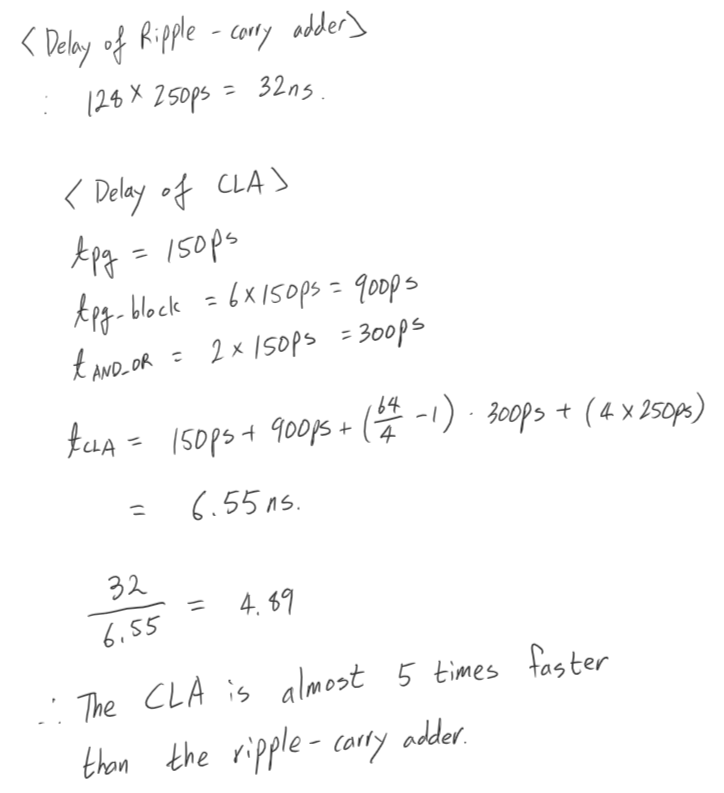 < Delay of Ripple - carry adder>
: 128 × 250ps = 32ns.
< Delay of CLA >
tpg = 150ps
tpg-block = 6 × 150ps = 900ps
t AND_OR = 2 × 150ps = 300ps
tCLA = 150ps + 900ps + (64/4 - 1) · 300ps + (4 × 250ps)
= 6.55 ns.
32/6.55 = 4.89
∴ The CLA is almost 5 times faster
than the ripple - carry adder.